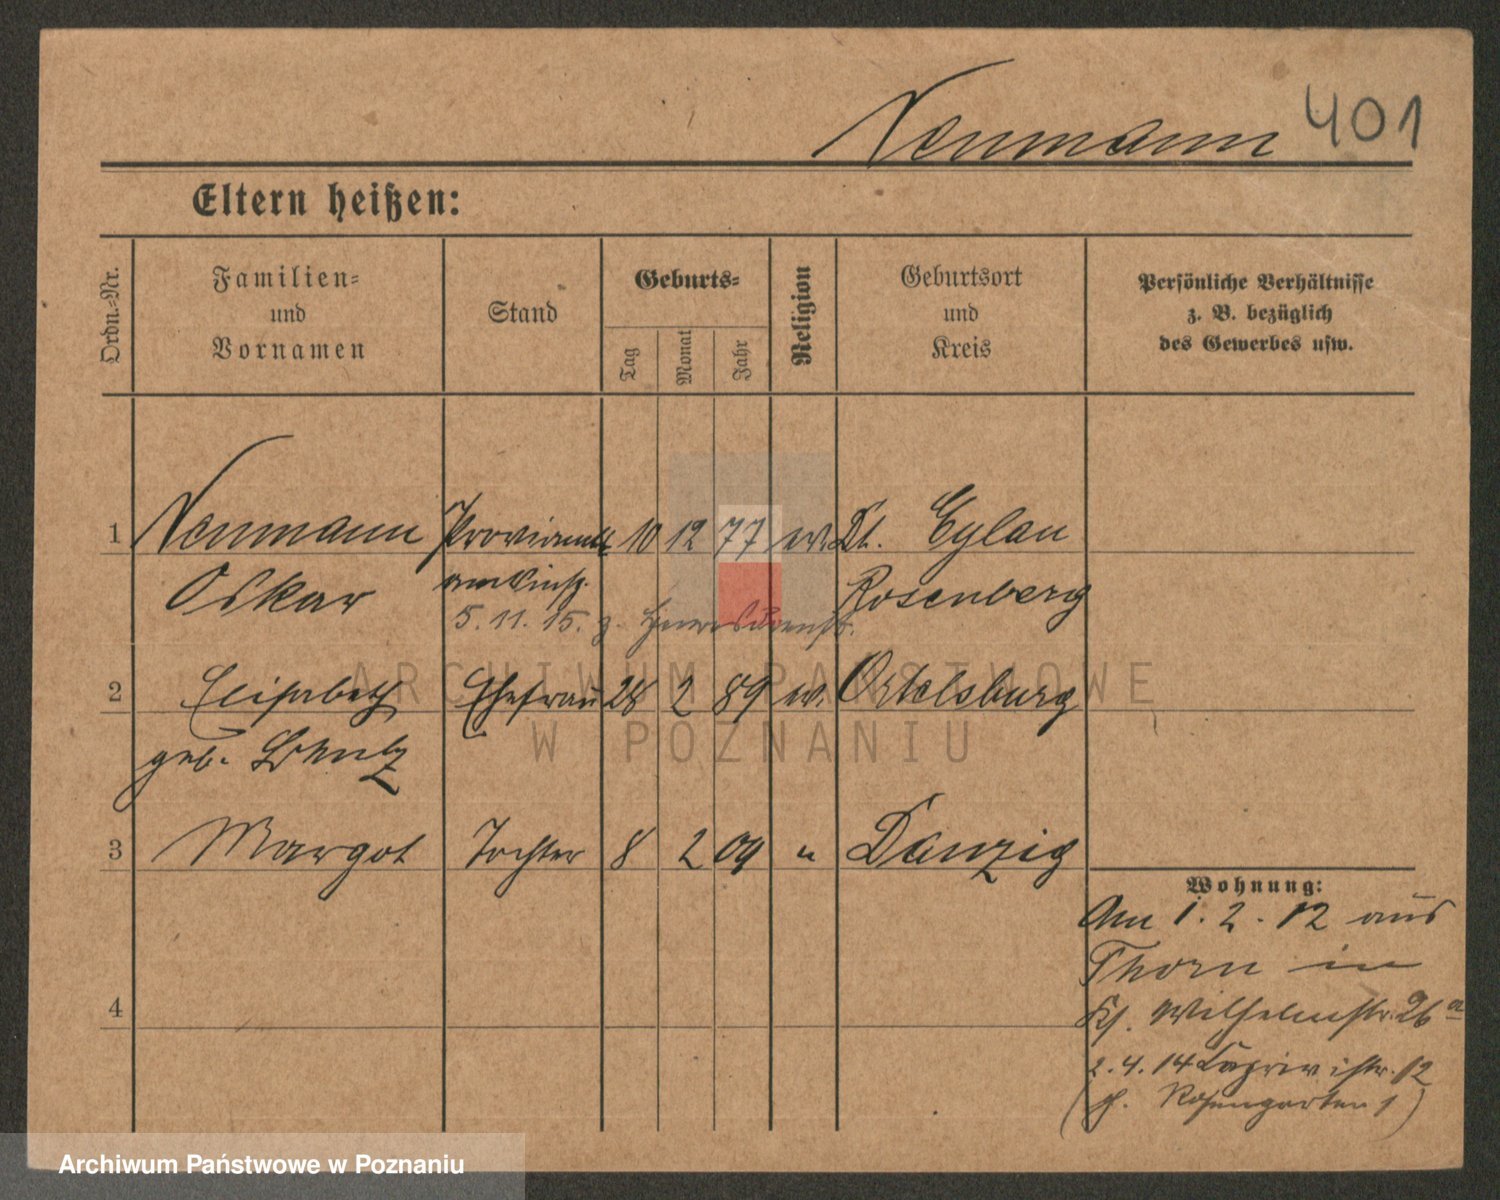 Neumann 401
Eltern heißen:
Ordn.-Nr.
Familien-
und
Vornamen
Stand
Geburts-
Tag
Monat
Jahr
Religion
Geburtsort
und
Kreis
Persönliche Verhältnisse
z. B. bezüglich
des Gewerbes usw.
1 Neumann Proviant 10 12 77 ev. Dt. Eylau
Oskar Rosenberg
5. 11. 15. z. Heeresdienst.
2 Elisabeth Ehefrau 28 2 89 ev. Ortelsburg
geb. Schulz
3 Margot Tochter 8 2 09 " Danzig
4
Wohnung:
Am 1. 2. 12 aus
Thorn in
Wilhelmstr. 26 a
2. 4. 14 Caprivistr. 12
Rosengarten 1)
ARCHIWUM PAŃSTWOWE
W POZNANIU
Archiwum Państwowe w Poznaniu